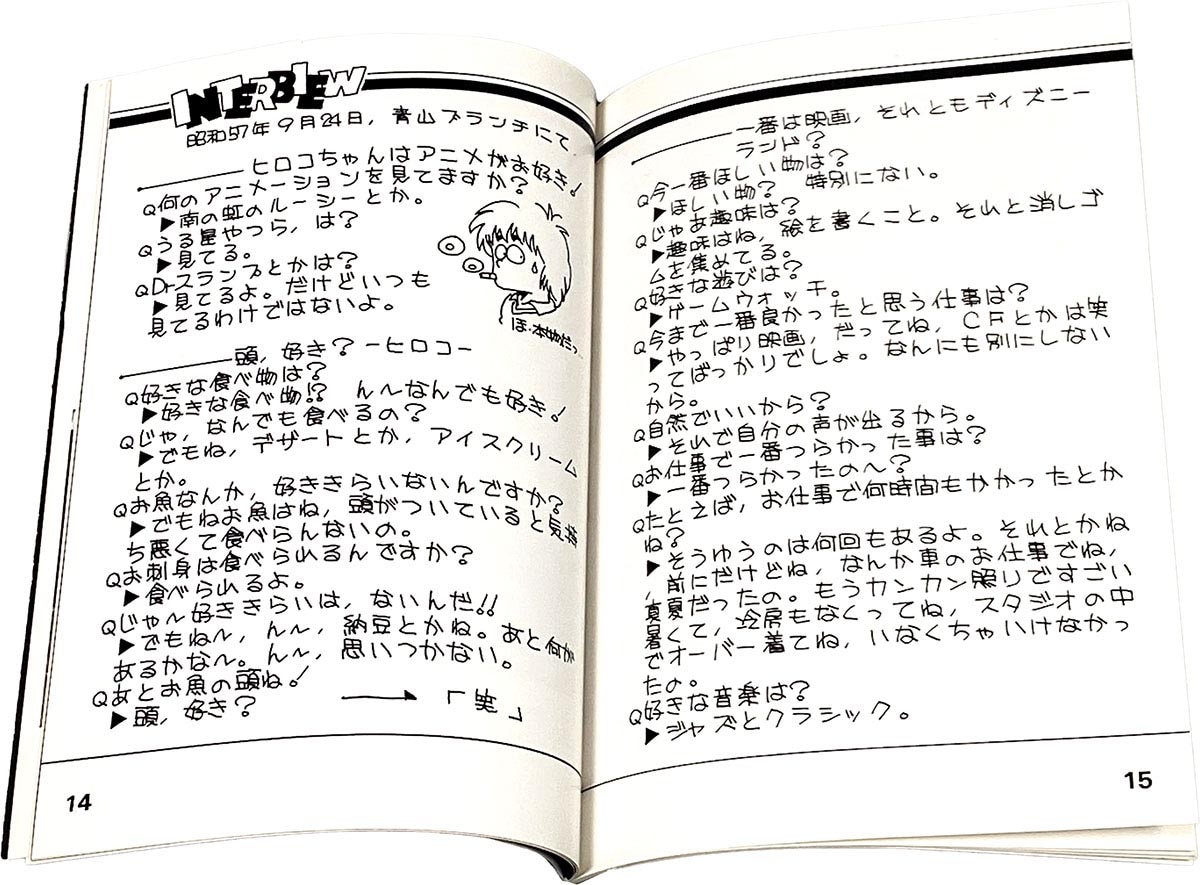 INTERBIEW
昭和57年9月24日，青山ブランチにて
ヒロコちゃんはアニメがお好き！
Q何のアニメーションを見てますか？
▶南の虹のルーシーとか。
Qうる星やつら，は？
▶見てる。
QDrスランプとかは？
▶見てるよ。だけどいつも
見てるわけではないよ。
ほ､本物だっ
頭，好き？ーヒロコー
Q好きな食べ物は？
▶好きな食べ物!? ん〜なんでも好き！
Qじゃ，なんでも食べるの？
▶でもね，デザートとか，アイスクリーム
とか。
Qお魚なんか，好ききらいないんですか？
▶でもねお魚はね，頭がついていると気持
ち悪くて食べらんないの。
Qお刺身は食べられるんですか？
▶食べられるよ。
Qじゃ〜好ききらいは，ないんだ!!
▶でもね〜，ん〜，納豆とかね。あと何が
あるかな〜。ん〜，思いつかない。
Qあとお魚の頭ね！
▶頭，好き？ → 「笑」
14
一番は映画，それともディズニー
ランド？
Q今一番ほしい物は？
▶ほしい物？ 特別にない。
Qじゃあ趣味は？
▶趣味はね，絵を書くこと。それと消しゴ
ムを集めてる。
Q好きな遊びは？
▶ゲームウォッチ。
Q今まで一番良かったと思う仕事は？
▶やっぱり映画，だってね，CFとかは笑
ってばっかりでしょ。なんにも別にしない
から。
Q自然でいいから？
▶それで自分の声が出るから。
Qお仕事で一番つらかった事は？
▶一番つらかったの〜？
Qたとえば，お仕事で何時間もかかったとか
ね？
▶そうゆうのは何回もあるよ。それとかね
，前にだけどね，なんか車のお仕事でね，
真夏だったの。もうカンカン照りですごい
暑くて，冷房もなくってね，スタジオの中
でオーバー着てね，いなくちゃいけなかっ
たの。
Q好きな音楽は？
▶ジャズとクラシック。
15